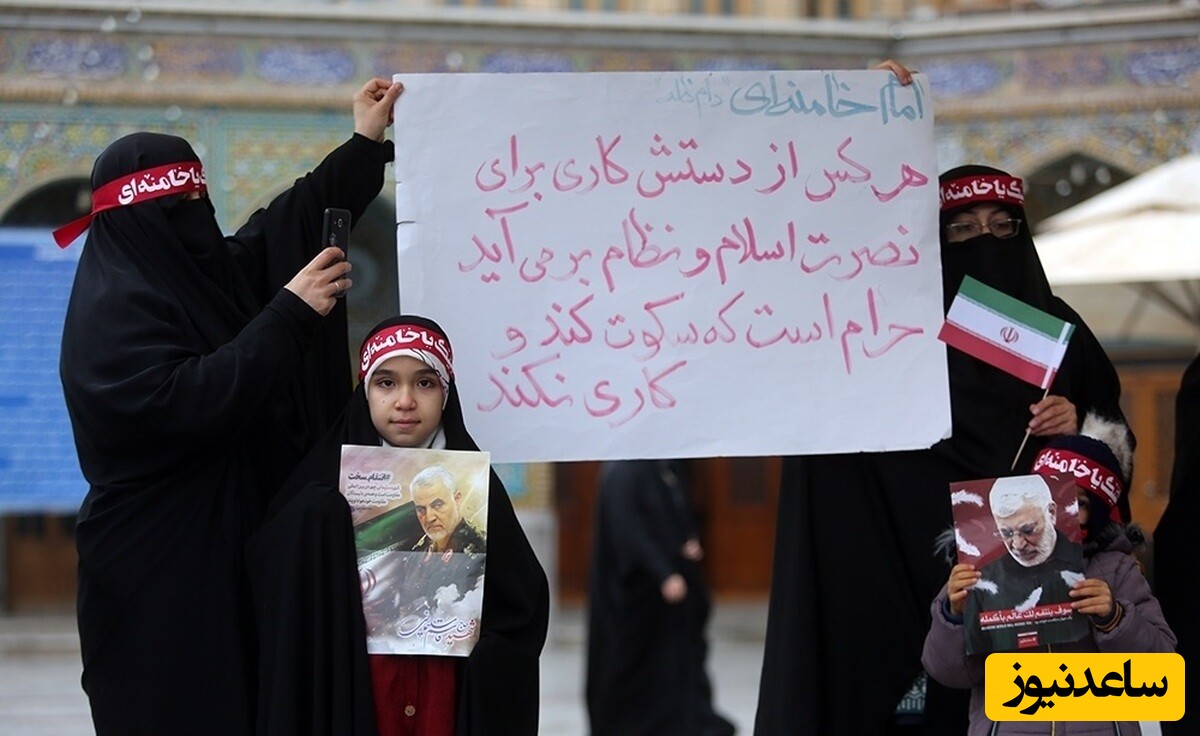 امام خامنه‌ای "دام ظله"
هر کس از دستش کاری برای
نصرت اسلام و نظام بر می آید
حرام است که سکوت کند و
کاری نکند
یا خامنه‌ای
لبیک یا خامنه‌ای
یک یا خامنه‌ای
یا خامنه‌ای
#انتقام_سخت
شهید قاسم سلیمانی
سوف ينتقم لك عالم بأكمله
ساعدنیوز